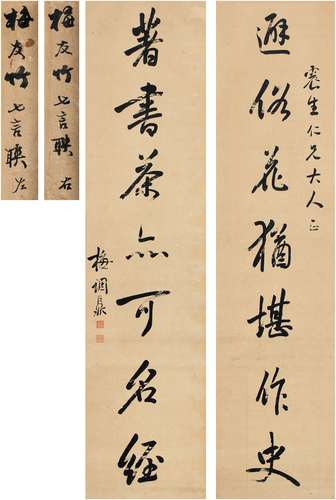 避俗花猶堪作史
震生仁兄大人正
著書茶亦可名經
梅調鼎
梅友竹七言聯右
梅友竹七言聯左